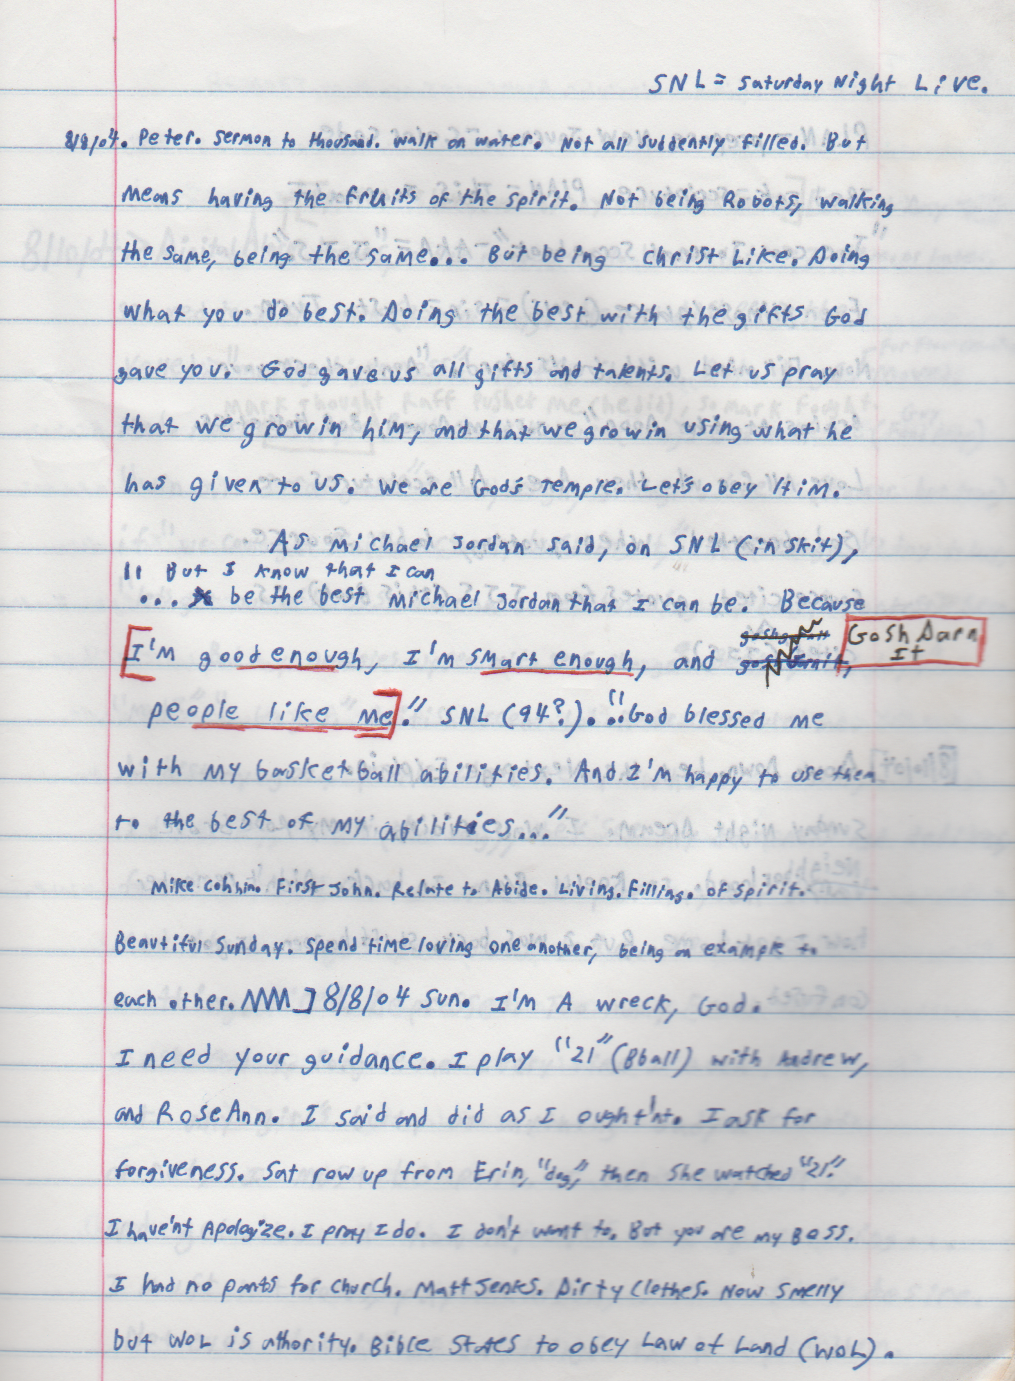 SNL = Saturday Night Live.
8/8/04. Peter. Sermon to thousand. Walk on water. Not all suddently filled. But
means having the fruits of the spirit. Not being Robots, walking
the same, being the same... But being christ Like. Doing
what you do best. Doing the best with the gifts God
gave you. God gave us all gifts and talents. Let us pray
that we grow in him, and that we grow in using what he
has given to us. We are God's Temple. Let's obey Him.
As Michael Jordan said, on SNL (in skit),
" But I know that I can
... be the best Michael Jordan that I can be. Because
[I'm good enough, I'm smart enough, and Gosh Darn
It
people like me]." SNL (94?). "..God blessed me
with my basketball abilities. And I'm happy to use them
to the best of my abilities..."
Mike Cohhin. First John. Relate to Abide. Living. Filling. of spirit.
Beautiful Sunday. Spend time loving one another, being an example to
each other. ] 8/8/04 Sun. I'm A wreck, God.
I need your guidance. I play "21" (8ball) with Andrew,
and RoseAnn. I said and did as I ought'nt. I ask for
forgiveness. Sat row up from Erin, "dog," then she watched "21."
I have'nt Apologize. I pray I do. I don't want to. But you are my Boss.
I had no pants for church. Matt Jenks. Dirty Clothes. Now smelly
but WOL is athority. Bible States to obey Law of Land (WOL).